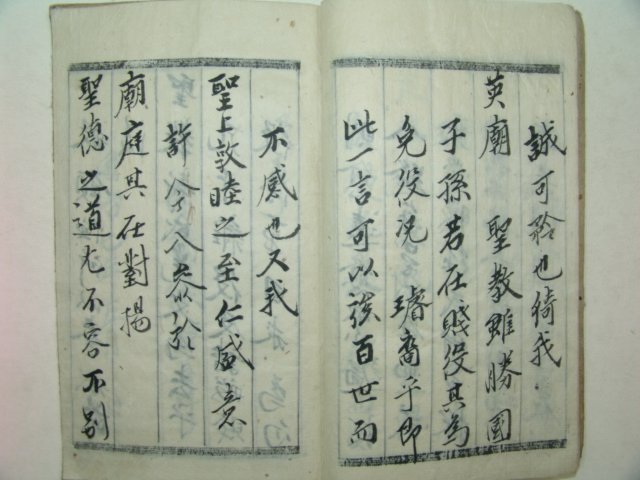 誠可矜也猗我
英廟 聖敎雖勝國
子孫若在賤役其爲
免役况 璿裔乎卽
此一言可以竢百世而
不感也又我
聖上敦睦之至仁盛意
許令入叅於
廟庭其在對揚
聖德之道尤不容不別